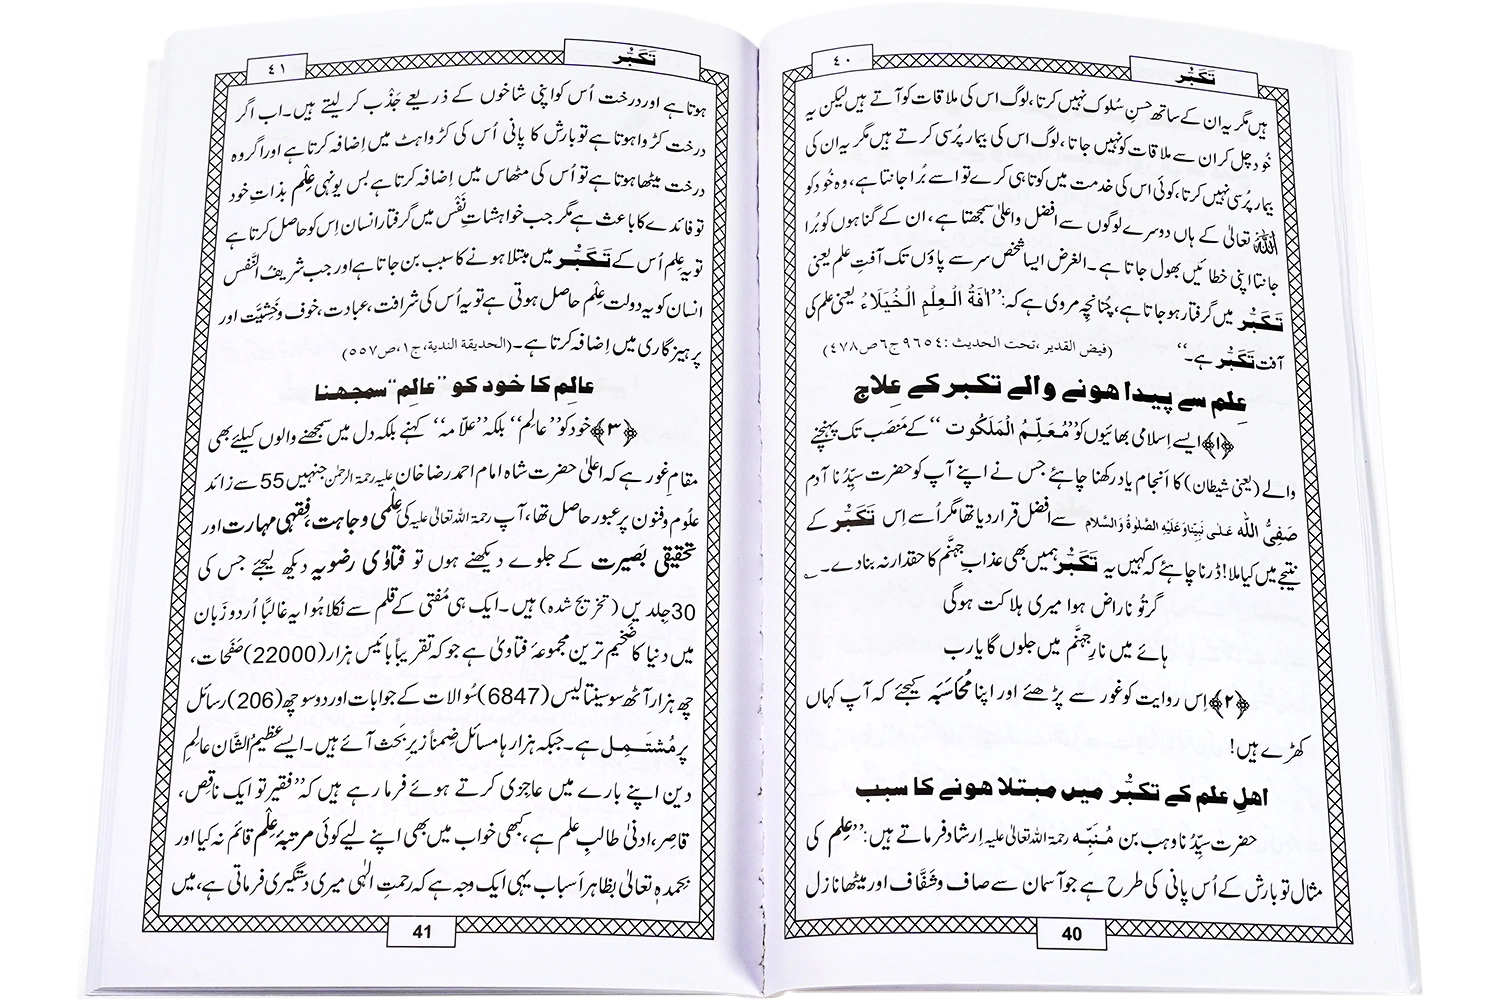 تَکَبُّر
٤٠
ہیں مگر یہ ان کے ساتھ حسنِ سُلوک نہیں کرتا، لوگ اس کی ملاقات کو آتے ہیں لیکن یہ
خُود چل کر ان سے ملاقات کو نہیں جاتا، لوگ اس کی بیمار پُرسی کرتے ہیں مگر یہ ان کی
بیمار پُرسی نہیں کرتا، کوئی اس کی خدمت میں کوتاہی کرے تو اسے بُرا جانتا ہے، وہ خُود کو
اللہ تعالیٰ کے ہاں دوسرے لوگوں سے افضل واعلیٰ سمجھتا ہے، ان کے گناہوں کو بُرا
جانتا اپنی خطائیں بھول جاتا ہے۔ الغرض ایسا شخص سر سے پاؤں تک آفتِ علم یعنی
تَکَبُّر میں گرفتار ہو جاتا ہے، چُنانچہ مروی ہے کہ: ’’اٰفَةُ الْعِلْمِ الْخُیَلَاءُ یعنی علم کی
آفت تَکَبُّر ہے۔‘‘ (فیض القدیر ،تحت الحدیث :٩٦٥٤ ج٦ص٤٧٨)
عِلم سے پیدا ہونے والے تکبر کے عِلاج
﴿۱﴾ ایسے اِسلامی بھائیوں کو ’’مُعَلِّمُ الْمَلَکُوت ‘‘ کے مَنصَب تک پہنچنے
والے (یعنی شیطان) کا اَنجام یاد رکھنا چاہئے جس نے اپنے آپ کو حضرت سیِّدُنا آدم
صَفِیُّ اللّٰه عَلٰی نَبِیِّنَاوَعَلَیْهِ الصَّلٰوةُ وَالسَّلَام سے افضل قرار دیا تھا مگر اُسے اِس تَکَبُّر کے
نتیجے میں کیا ملا! ڈرنا چاہئے کہ کہیں یہ تَکَبُّر ہمیں بھی عذابِ جہنَّم کا حقدار نہ بنا دے۔
گر تُو ناراض ہوا میری ہلاکت ہوگی
ہائے میں نارِ جہنَّم میں جلوں گا یارب
﴿۲﴾ اِس روایت کو غور سے پڑھئے اور اپنا مُحاسَبَہ کیجئے کہ آپ کہاں
کھڑے ہیں!
اھلِ عِلم کے تکبُّر میں مبتلا ھونے کا سبب
حضرت سیِّدُنا وہب بن مُنَبِّہ رحمۃ اللہ تعالیٰ علیہ اِرشاد فرماتے ہیں: ’’عِلم کی
مثال تو بارش کے اُس پانی کی طرح ہے جو آسمان سے صاف وشَفّاف اور میٹھا نازل
40
تَکَبُّر
٤١
ہوتا ہے اور درخت اُس کو اپنی شاخوں کے ذریعے جَذْب کر لیتے ہیں۔ اب اگر
درخت کڑوا ہوتا ہے تو بارش کا پانی اُس کی کڑواہٹ میں اِضافہ کرتا ہے اور اگر وہ
درخت میٹھا ہوتا ہے تو اُس کی مٹھاس میں اِضافہ کرتا ہے بس یونہی عِلْم بذاتِ خود
تو فائدے کا باعث ہے مگر جب خواہشاتِ نفْس میں گرفتار انسان اِس کو حاصل کرتا ہے
تو یہ عِلم اُس کے تَکَبُّر میں مبتلا ہونے کا سبب بن جاتا ہے اور جب شریفُ النَّفس
انسان کو یہ دولتِ عِلْم حاصل ہوتی ہے تو یہ اُس کی شرافت، عبادت، خوف وخَشِیَّت اور
پرہیزگاری میں اِضافہ کرتا ہے۔ (الحدیقة الندیة،ج١،ص٥٥٧)
عالِم کا خود کو ’’عالِم‘‘ سمجھنا
﴿۳﴾ خود کو ’’عالِم‘‘ بلکہ ’’علاّمہ‘‘ کہنے بلکہ دل میں سمجھنے والوں کیلئے بھی
مقامِ غور ہے کہ اعلیٰ حضرت شاہ امام احمد رضا خان علیہ رحمۃ الرحمٰن جنہیں 55 سے زائد
علُوم وفنون پر عبور حاصل تھا، آپ رحمۃ اللہ تعالیٰ علیہ کی عِلْمی وجاہت، فِقہی مہارت اور
تحقیقی بَصیرت کے جلوے دیکھنے ہوں تو فتاوٰی رضویہ دیکھ لیجئے جس کی
30 جِلدیں (تخریج شدہ) ہیں۔ ایک ہی مُفتی کے قلم سے نکلا ہُوا یہ غالبًا اُردو زَبان
میں دنیا کا ضَخیم ترین مجموعۂ فتاویٰ ہے جو کہ تقریباً بائیس ہزار (22000) صَفَحات،
چھ ہزار آٹھ سو سینتالیس (6847) سُوالات کے جوابات اور دو سو چھ (206) رسائل
پر مُشتَمِل ہے۔ جبکہ ہزارہا مسائل ضِمناً زیرِ بحث آئے ہیں۔ ایسے عظیمُ الشَّان عالِمِ
دین اپنے بارے میں عاجِزی کرتے ہوئے فرما رہے ہیں کہ ’’فقیر تو ایک ناقِص،
قاصِر، ادنیٰ طالبِ علم ہے، کبھی خواب میں بھی اپنے لیے کوئی مرتبۂ عِلْم قائم نہ کیا اور
بحمدہٖ تعالیٰ بظاہر اَسباب یہی ایک وجہ ہے کہ رحمتِ الٰہی میری دستگیری فرماتی ہے، میں
41